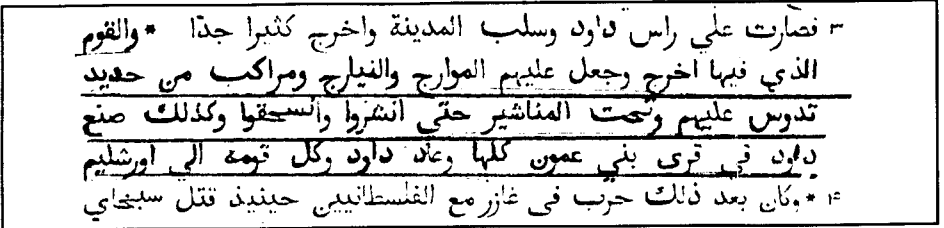 ٣ فصارت علي راس داود وسلب المدينة واخرج كثيرا جدا * والقوم
الذي فيها اخرج وجعل عليهم الموارج والفيارج ومراكب من حديد
تدوس عليهم وتحت المناشير حتي انشروا وانسحقوا وكذلك صنع
داود في قرى بني عمون كلها وعاد داود وكل قومه الي اورشليم
۴ * وكان بعد ذلك حرب في غازر مع الفلسطانيين حينيذ قتل سبخاي